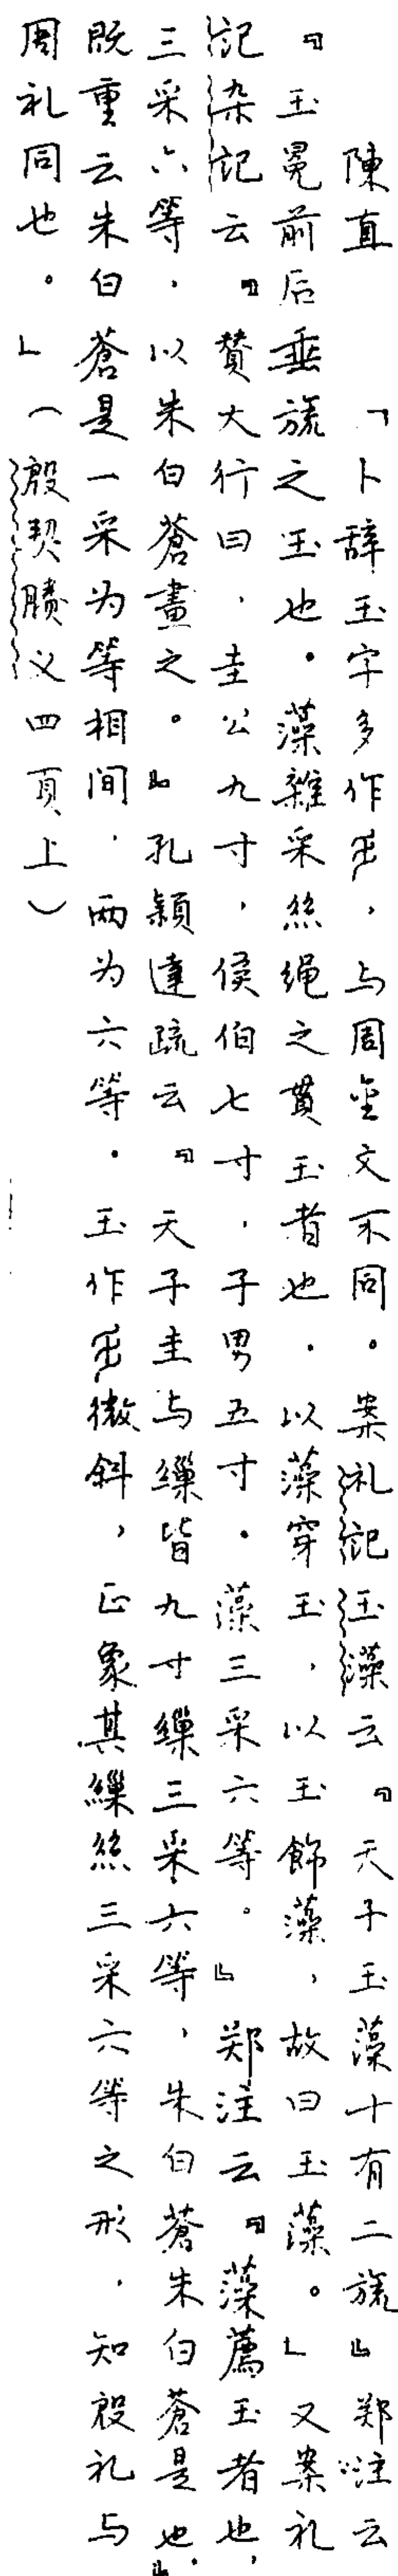 陳直　「卜辞玉字多作，与周金文不同。案礼記玉藻云『天子玉藻十有二旒』郑注云
『玉冕前后垂旒之玉也。藻雜采絲绳之貫玉者也．以藻穿玉，以玉飾藻，故曰玉藻。」又案礼
記杂記云『賛大行曰，圭公九寸，侯伯七寸，子男五寸．藻三采六等。』郑注云『藻薦玉者也，
三采六等，以朱白蒼畫之。』孔穎達疏云『天子圭与繅皆九寸繅三采六等，朱白蒼朱白蒼是也．』
既重云朱白蒼是一采为等相间．两为六等．玉作微斜，正象其繅絲三采六等之形．知殷礼与
周礼同也。」（殷契賸义四頁上）